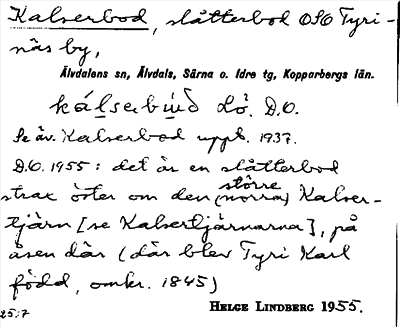 Kalserbod, slåtterbod OSO Tyri-
näs by,
Älvdalens sn, Älvdals, Särna o. Idre tg, Kopparbergs län.
kálserbu̇̀d Lȯ. D.O.
Se äv. Kalserbod uppt. 1937.
D.O. 1955: det är en slåtterbod
strax öster om den större (norra) Kalser-
tjärn [se Kalsertjärnarna], på
åsen där (där blev Tyri Karl
född, omkr. 1845)
25:7 HELGE LINDBERG 1955.